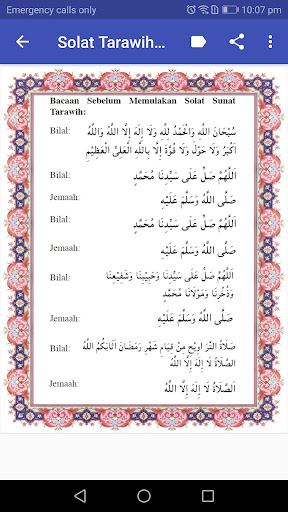 Emergency calls only
10:07 pm
Solat Tarawih...
Bacaan Sebelum Memulakan Solat Sunat
Tarawih:
Bilal: سُبْحَانَ اللَّهِ وَالْحَمْدُ لِلَّهِ وَلَا إِلَهَ إِلَّا اللَّهُ وَاللَّهُ
أَكْبَرُ وَلَا حَوْلَ وَلَا قُوَّةَ إِلَّا بِاللَّهِ الْعَلِيِّ الْعَظِيْمِ
Bilal: اَللَّهُمَّ صَلِّ عَلَى سَيِّدِنَا مُحَمَّدٍ
Jemaah: صَلَّى اللَّهُ وَسَلَّمَ عَلَيْهِ
Bilal: اَللَّهُمَّ صَلِّ عَلَى سَيِّدِنَا مُحَمَّدٍ
Jemaah: صَلَّى اللَّهُ وَسَلَّمَ عَلَيْهِ
Bilal: اَللَّهُمَّ صَلِّ عَلَى سَيِّدِنَا وَحَبِيْبِنَا وَشَفِيْعِنَا
وَذُخْرِنَا وَمَوْلَانَا مُحَمَّدٍ
Jemaah: صَلَّى اللَّهُ وَسَلَّمَ عَلَيْهِ
Bilal: صَلَاةُ التَّرَاوِيْحِ مِنْ قِيَامِ شَهْرِ رَمَضَانَ أَثَابَكُمُ اللَّهُ
الصَّلَاةُ لَا إِلَهَ إِلَّا اللَّهُ
Jemaah: اَلصَّلَاةُ لَا إِلَهَ إِلَّا اللَّهُ